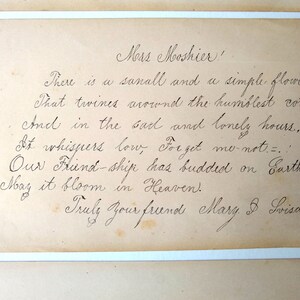 Mrs Moshier!
There is a sanall and a simple flow
That twines around the humblest co
And in the sad and lonely hours.
It whispers low, Forget me not =.
Our Friend-ship has budded on Earth
May it bloom in Heaven.
Truly Your friend Mary B